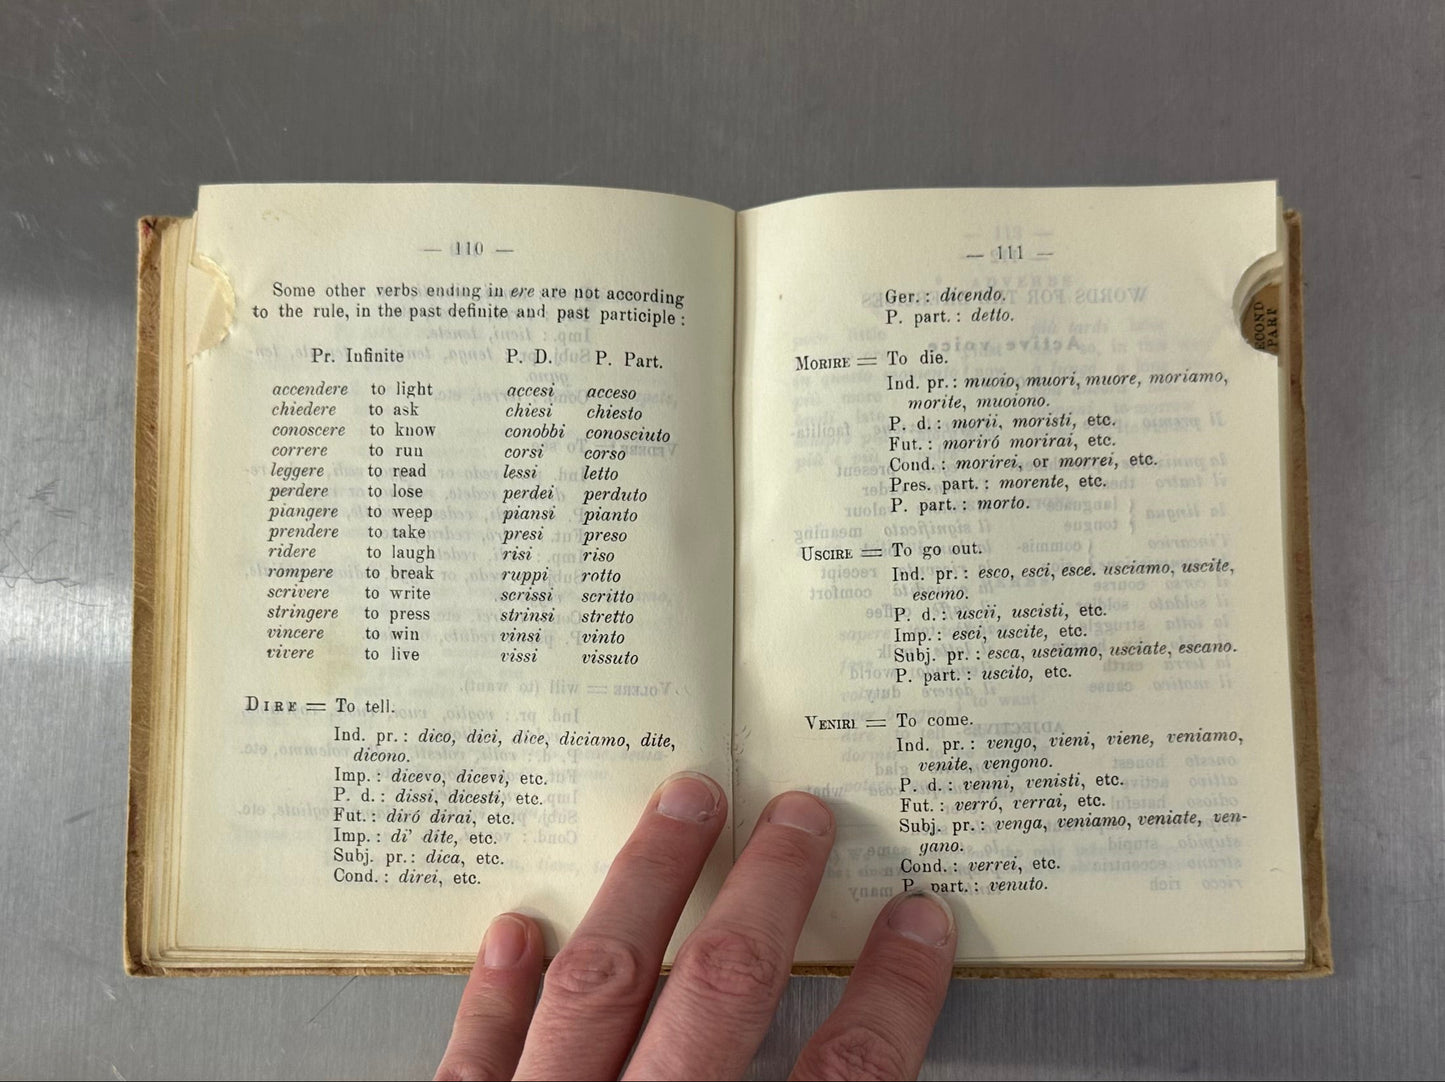 — 110 —
Some other verbs ending in ere are not according
to the rule, in the past definite and past participle :
Pr. Infinite P. D. P. Part.
accendere to light accesi acceso
chiedere to ask chiesi chiesto
conoscere to know conobbi conosciuto
correre to run corsi corso
leggere to read lessi letto
perdere to lose perdei perduto
piangere to weep piansi pianto
prendere to take presi preso
ridere to laugh risi riso
rompere to break ruppi rotto
scrivere to write scrissi scritto
stringere to press strinsi stretto
vincere to win vinsi vinto
vivere to live vissi vissuto
DIRE = To tell.
Ind. pr. : dico, dici, dice, diciamo, dite,
dicono.
Imp. : dicevo, dicevi, etc.
P. d. : dissi, dicesti, etc.
Fut. : diró dirai, etc.
Imp. : di' dite, etc.
Subj. pr. : dica, etc.
Cond. : direi, etc.
— 111 —
Ger. : dicendo.
P. part. : detto.
MORIRE = To die.
Ind. pr. : muoio, muori, muore, moriamo,
morite, muoiono.
P. d. : morii, moristi, etc.
Fut. : moriró morirai, etc.
Cond. : morirei, or morrei, etc.
Pres. part. : morente, etc.
P. part. : morto.
USCIRE = To go out.
Ind. pr. : esco, esci, esce. usciamo, uscite,
escono.
P. d. : uscii, uscisti, etc.
Imp. : esci, uscite, etc.
Subj. pr. : esca, usciamo, usciate, escano.
P. part. : uscito, etc.
VENIRE = To come.
Ind. pr. : vengo, vieni, viene, veniamo,
venite, vengono.
P. d. : venni, venisti, etc.
Fut. : verró, verrai, etc.
Subj. pr. : venga, veniamo, veniate, ven-
gano.
Cond. : verrei, etc.
P. part. : venuto.
ECOND
PART